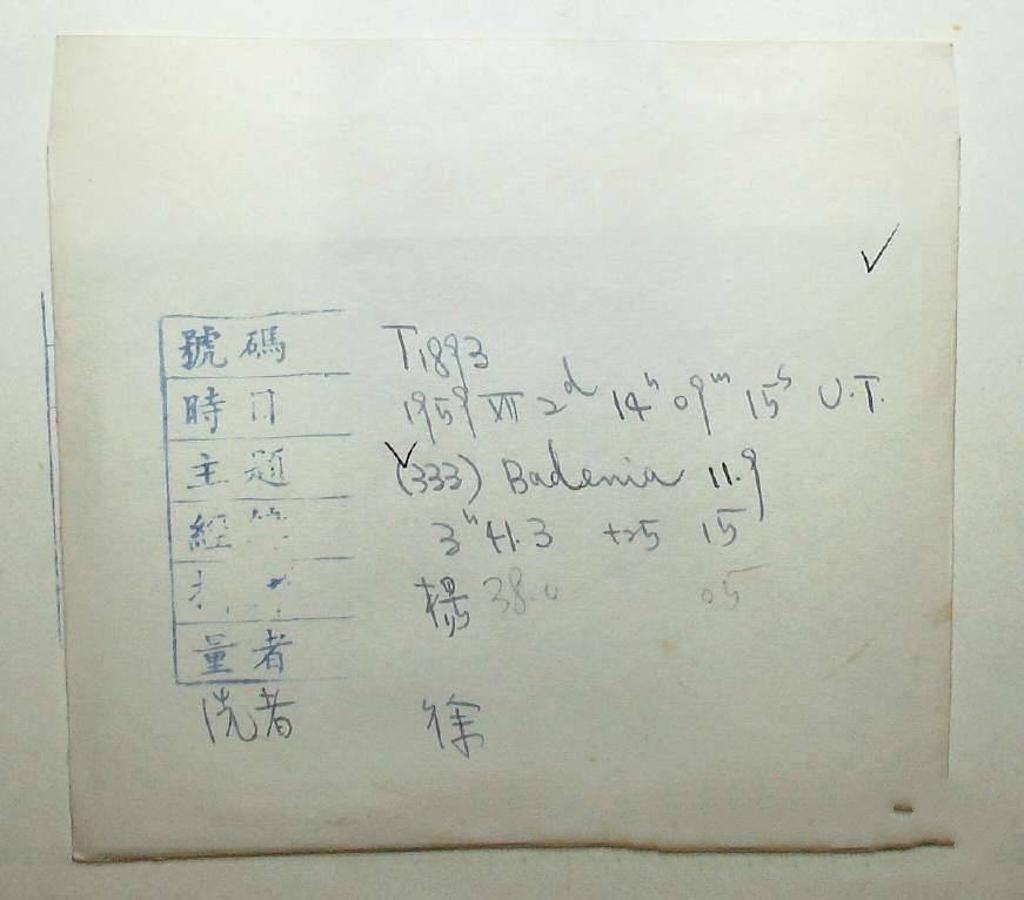 號碼 T1893
時日 1959 VII 2d 14h 09m 15s U.T.
主題 (333) Badenia 11.9
經 3h 41.3 +25 15
楊 38.0 05
量者
洗者 徐